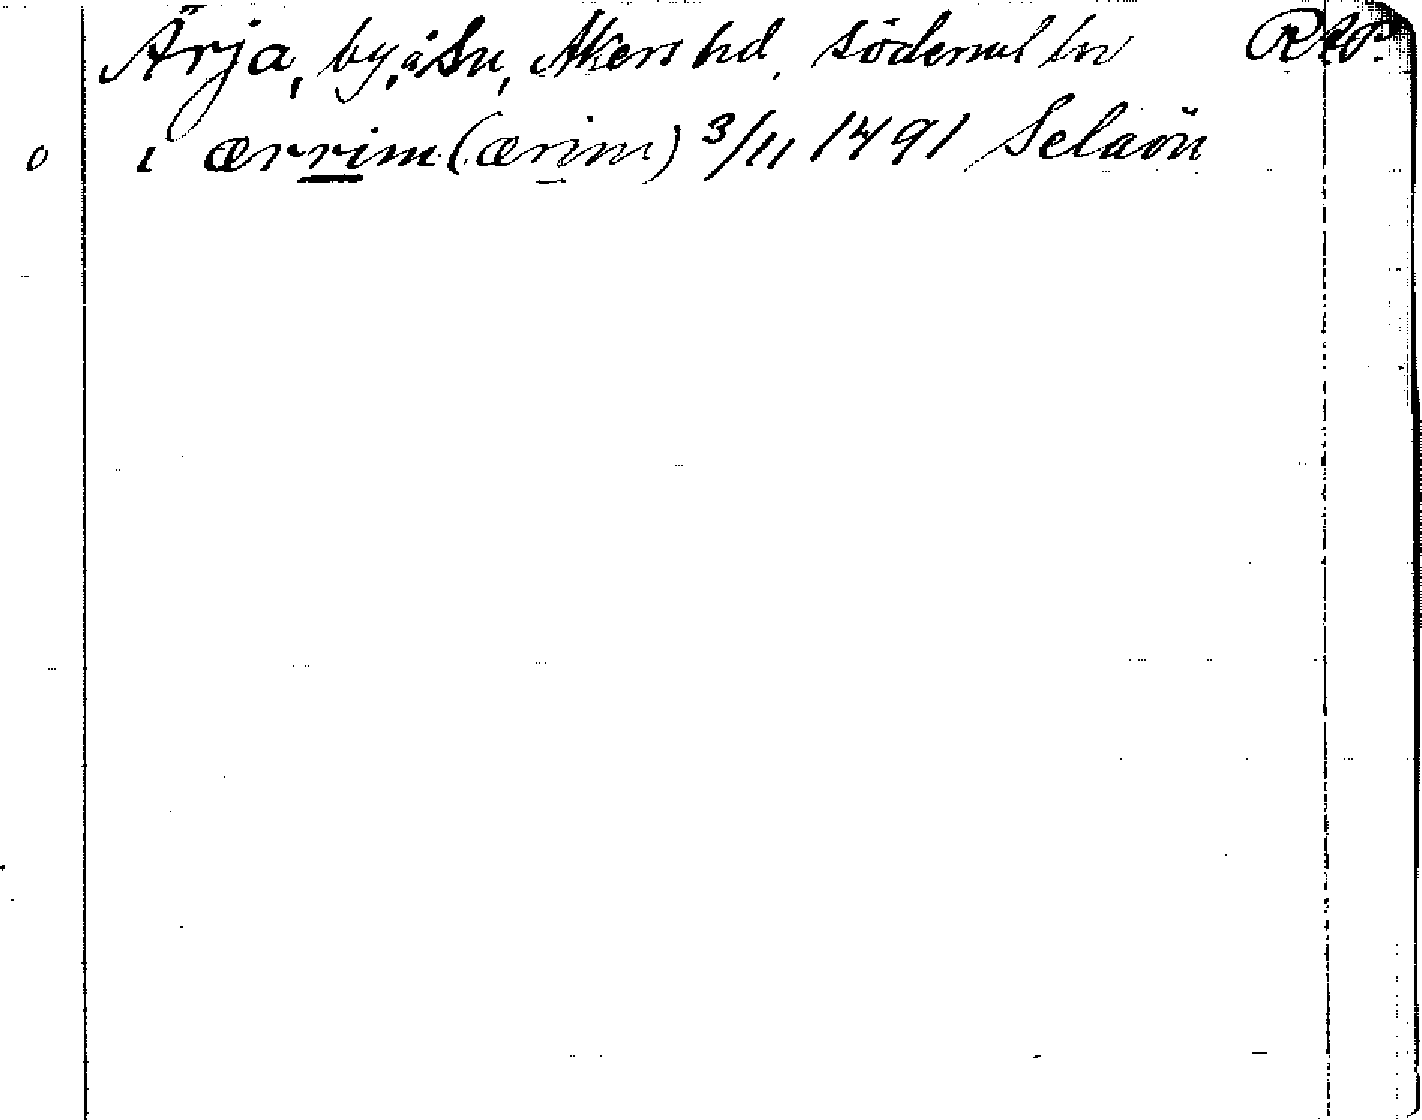 Ärja, by, å Sn, Åkers hd, Söderml ln RAP.
o i ærrim (ærim) 3/11 1491 Selaön